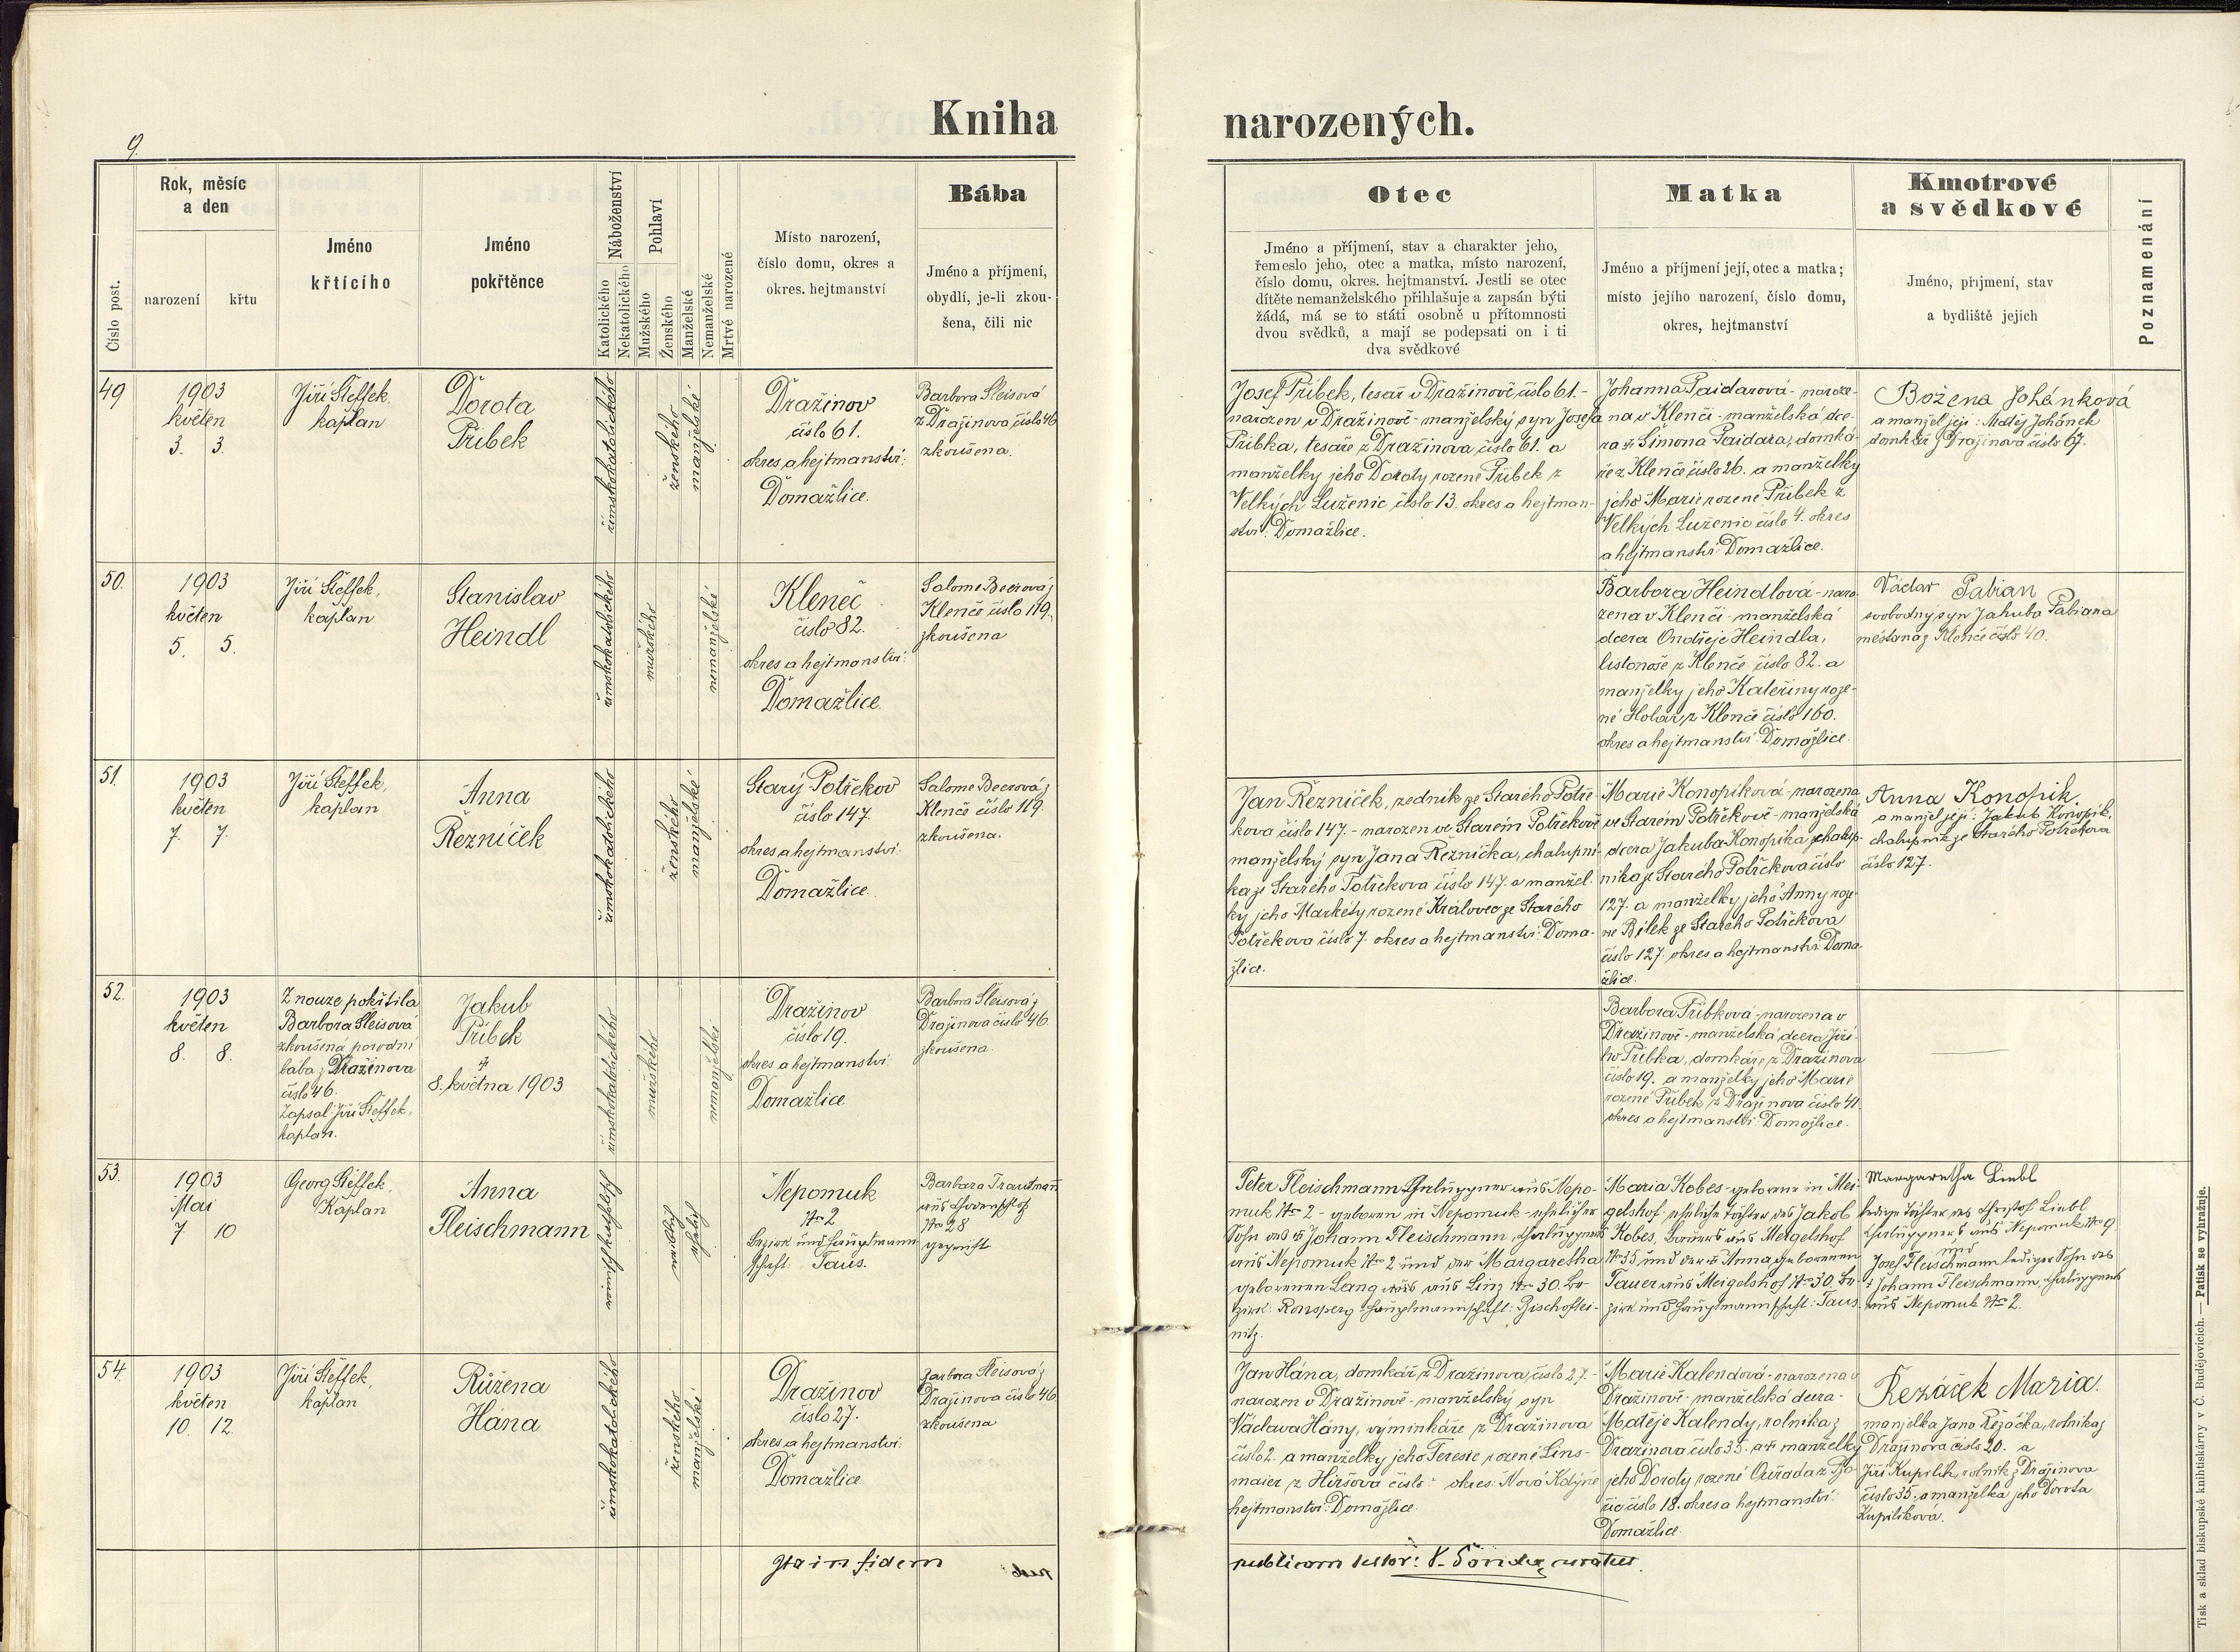 Kniha
narozených.
9.
Rok, měsíc
a den
narození
křtu
Číslo post.
Jméno
křtícího
Jméno
pokřtěnce
Náboženství
Katolického
Nekatolického
Pohlaví
Mužského
Ženského
Manželské
Nemanželské
Mrtvé narozené
Místo narození,
číslo domu, okres a
okres. hejtmanství
Bába
Jméno a příjmení,
obydlí, je-li zkou-
šena, čili nic
Otec
Jméno a příjmení, stav a charakter jeho,
řemeslo jeho, otec a matka, místo narození,
číslo domu, okres. hejtmanství. Jestli se otec
dítěte nemanželského přihlašuje a zapsán býti
žádá, má se to státi osobně u přítomnosti
dvou svědků, a mají se podepsati on i ti
dva svědkové
Matka
Jméno a příjmení její, otec a matka;
místo jejího narození, číslo domu,
okres, hejtmanství
Kmotrové
a svědkové
Jméno, příjmení, stav
a bydliště jejich
Poznamenání
49
1903
květen
3. 3.
Jiří Steffek,
kaplan
Dorota
Přibek
římskokatolického
ženského
manželské
Dražinov
číslo 61.
okres a hejtmanství:
Domažlice.
Barbora Sleisová
z Dražinova číslo 46
zkoušena.
Josef Přibek, tesař v Dražinově číslo 61. -
narozen v Dražinově - manželský syn Josefa
Přibka, tesaře z Dražinova číslo 61. a
manželky jeho Doroty rozené Přibek z
Velkých Luženic číslo 13. okres a hejtman-
ství: Domažlice.
Johanna Paidarová - naroze-
na v Klenčí - manželská dce-
ra † Šimona Paidara, domká-
ře z Klenče číslo 26. a manželky
jeho Marie rozené Přibek z
Velkých Luženic číslo 4. okres
a hejtmanství: Domažlice.
Božena Johánková
a manžel její: Matěj Johánek
domkář z Dražinova číslo 67.
50.
1903
květen
5. 5.
Jiří Steffek,
kaplan
Stanislav
Heindl
římskokatolického
mužského
nemanželské
Kleneč
číslo 82.
okres a hejtmanství:
Domažlice
Salome Beerová z
Klenče číslo 119.
zkoušena
Barbora Heindlová - naro-
zena v Klenčí - manželská
dcera Ondřeje Heindla,
listonoše z Klenče číslo 82. a
manželky jeho Kateřiny roze-
né Holar z Klenče číslo 160.
okres a hejtmanství: Domažlice.
Václav Pabian
svobodný syn Jakuba Pabiana
měšťana z Klenče číslo 40.
51.
1903
květen
7. 7.
Jiří Steffek,
kaplan
Anna
Řezníček
římskokatolického
ženského
manželské
Starý Potřekov
číslo 147.
okres a hejtmanství:
Domažlice
Salome Beerová z
Klenče číslo 119
zkoušena.
Jan Řezníček, zedník ze Starého Potře-
kova číslo 147. - narozen ve Starém Potřekově
manželský syn Jana Řezníčka, chalupní-
ka ze Starého Potřekova číslo 147. a manžel-
ky jeho Markéty rozené Královec ze Starého
Potřekova číslo 7. okres a hejtmanství: Doma-
žlice.
Marie Konopíková - narozena
ve Starém Potřekově - manželská
dcera Jakuba Konopíka, chalup-
níka ze Starého Potřekova číslo
127. a manželky jeho Anny roze-
né Bílek ze Starého Potřekova
číslo 127. okres a hejtmanství: Doma-
žlice.
Anna Konopik,
a manžel její: Jakub Konopík,
chalupník ze Starého Potřekova
číslo 127.
52.
1903
květen
8. 8.
Z nouze pokřtila
Barbora Sleisová
zkoušená porodní
bába z Dražinova
číslo 46.
Zapsal Jiří Steffek,
kaplan.
Jakub
Přibek
†
8. května 1903
římskokatolického
mužského
nemanželské
Dražinov
číslo 19.
okres a hejtmanství:
Domažlice
Barbora Sleisová z
Dražinova číslo 46.
zkoušena.
Barbora Přibková - narozena v
Dražinově - manželská dcera Jiří-
ho Přibka, domkáře z Dražinova
číslo 19. a manželky jeho Marie
rozené Přibek z Dražinova číslo 41.
okres a hejtmanství: Domažlice.
53.
1903
Mai
7 10
Georg Steffek,
Kaplan
Anna
Fleischmann
römischkatholisch
weiblich
ehelich
Nepomuk
No 2
Bezirk und Hauptmann-
schaft: Taus.
Barbara Trautmann
aus
No 28
geprüft
Peter Fleischmann, Chaluppner aus Nepo-
muk No 2 - geboren in Nepomuk - ehelicher
Sohn des † Johann Fleischmann, Chaluppners
aus Nepomuk No 2 und der Margaretha
geborenen Lang aus Linz No 30. Be-
zirk: Ronsperg Hauptmannschaft: Bischoftei-
nitz.
Maria Kobes - geboren in Mei-
gelshof, eheliche Tochter des Jakob
Kobes, Bauers aus Meigelshof
No 35 und der † Anna geborenen
Tauer aus Meigelshof No 30. Be-
zirk und Hauptmannschaft: Taus.
Margaretha Liebl
ledige Tochter des Christof Liebl
Chaluppners aus Nepomuk No 9.
und
Josef Fleischmann lediger Sohn des
† Johann Fleischmann, Chaluppners
aus Nepomuk No 2.
54.
1903
květen
10. 12.
Jiří Steffek,
kaplan
Růžena
Hána
římskokatolického
ženského
manželské
Dražinov
číslo 27.
okres a hejtmanství:
Domažlice
Barbora Sleisová z
Dražinova číslo 46.
zkoušena
Jan Hána, domkář z Dražinova, číslo 27. -
narozen v Dražinově - manželský syn
Václava Hány, výminkáře z Dražinova
číslo 2. a manželky jeho Teresie rozené Lins-
maier z Hiršova číslo: okres: Nová Kdyně
hejtmanství: Domažlice.
Marie Kalendová - narozena v
Dražinově - manželská dcera
Matěje Kalendy, rolníka z
Dražinova číslo 35. a † manželky
jeho Doroty rozené
číslo 18. okres a hejtmanství:
Domažlice.
Řezáček Maria.
manželka Jana Řezáčka, rolníka z
Dražinova číslo 20. a
Jiří Kupilík, rolník z Dražinova
číslo 35. a manželka jeho Dorota
Kupilíková.
Ita in fidem
publicam testor: curatus.
Tisk a sklad biskupské knihtiskárny v Č. Budějovicích. — Patisk se vyhražuje.